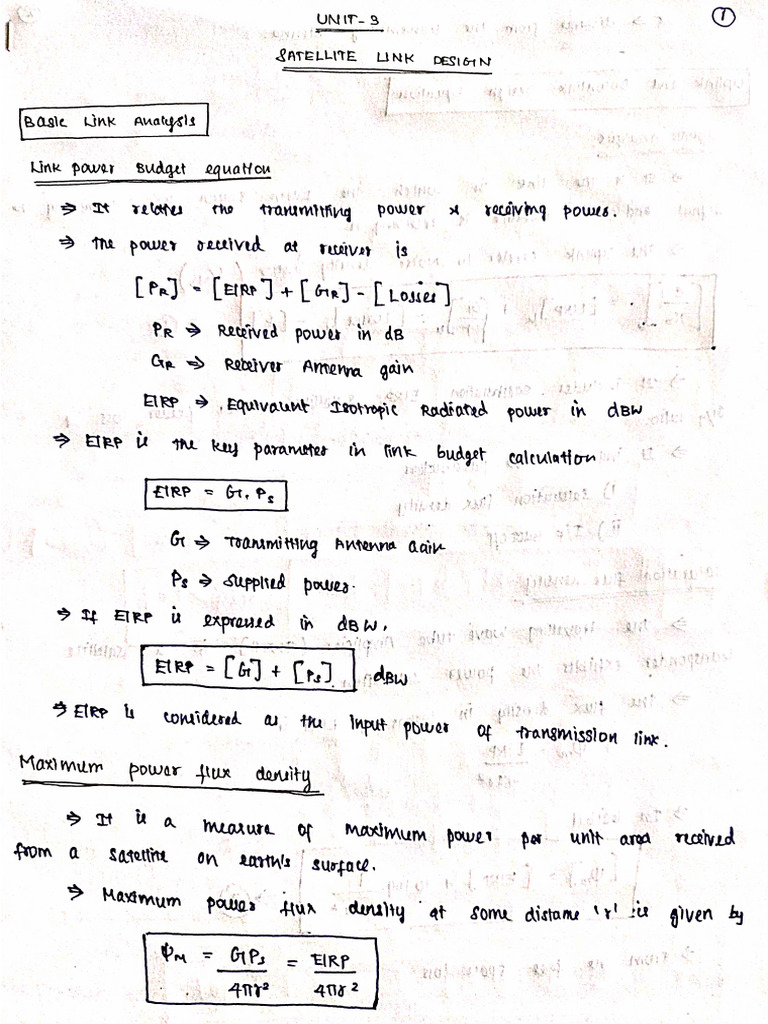 1
UNIT-3
SATELLITE LINK DESIGN
Basic Link Analysis
Link power Budget equation
⇒ It relates the transmitting power & receiving power.
⇒ the power received at receiver is
[PR] = [EIRP] + [GR] - [Losses]
PR ⇒ Received power in dB
GR ⇒ Receiver Antenna gain
EIRP ⇒ Equivaunt Isotropic Radiated power in dBW
⇒ EIRP is the key parameter in link budget calculation
EIRP = G. Ps
G ⇒ Transmitting Antenna Gain
Ps ⇒ supplied power.
⇒ If EIRP is expressed in dBW,
EIRP = [G] + [Ps] dBW
⇒ EIRP is considered as the input power of transmission link.
Maximum power flux density
⇒ It is a measure of maximum power per unit area received
from a satellite on earth's surface.
⇒ Maximum power flux density at some distane 'r' is given by
ΨM = GPs / 4πr² = EIRP / 4πr²